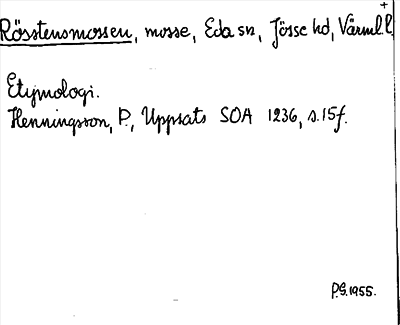 +
Rösstensmossen, mosse, Eda sn, Jösse hd, Värml. l.
Etymologi.
Henningsson, P., Uppsats SOA 1236, s. 15 f.
P.G. 1955.